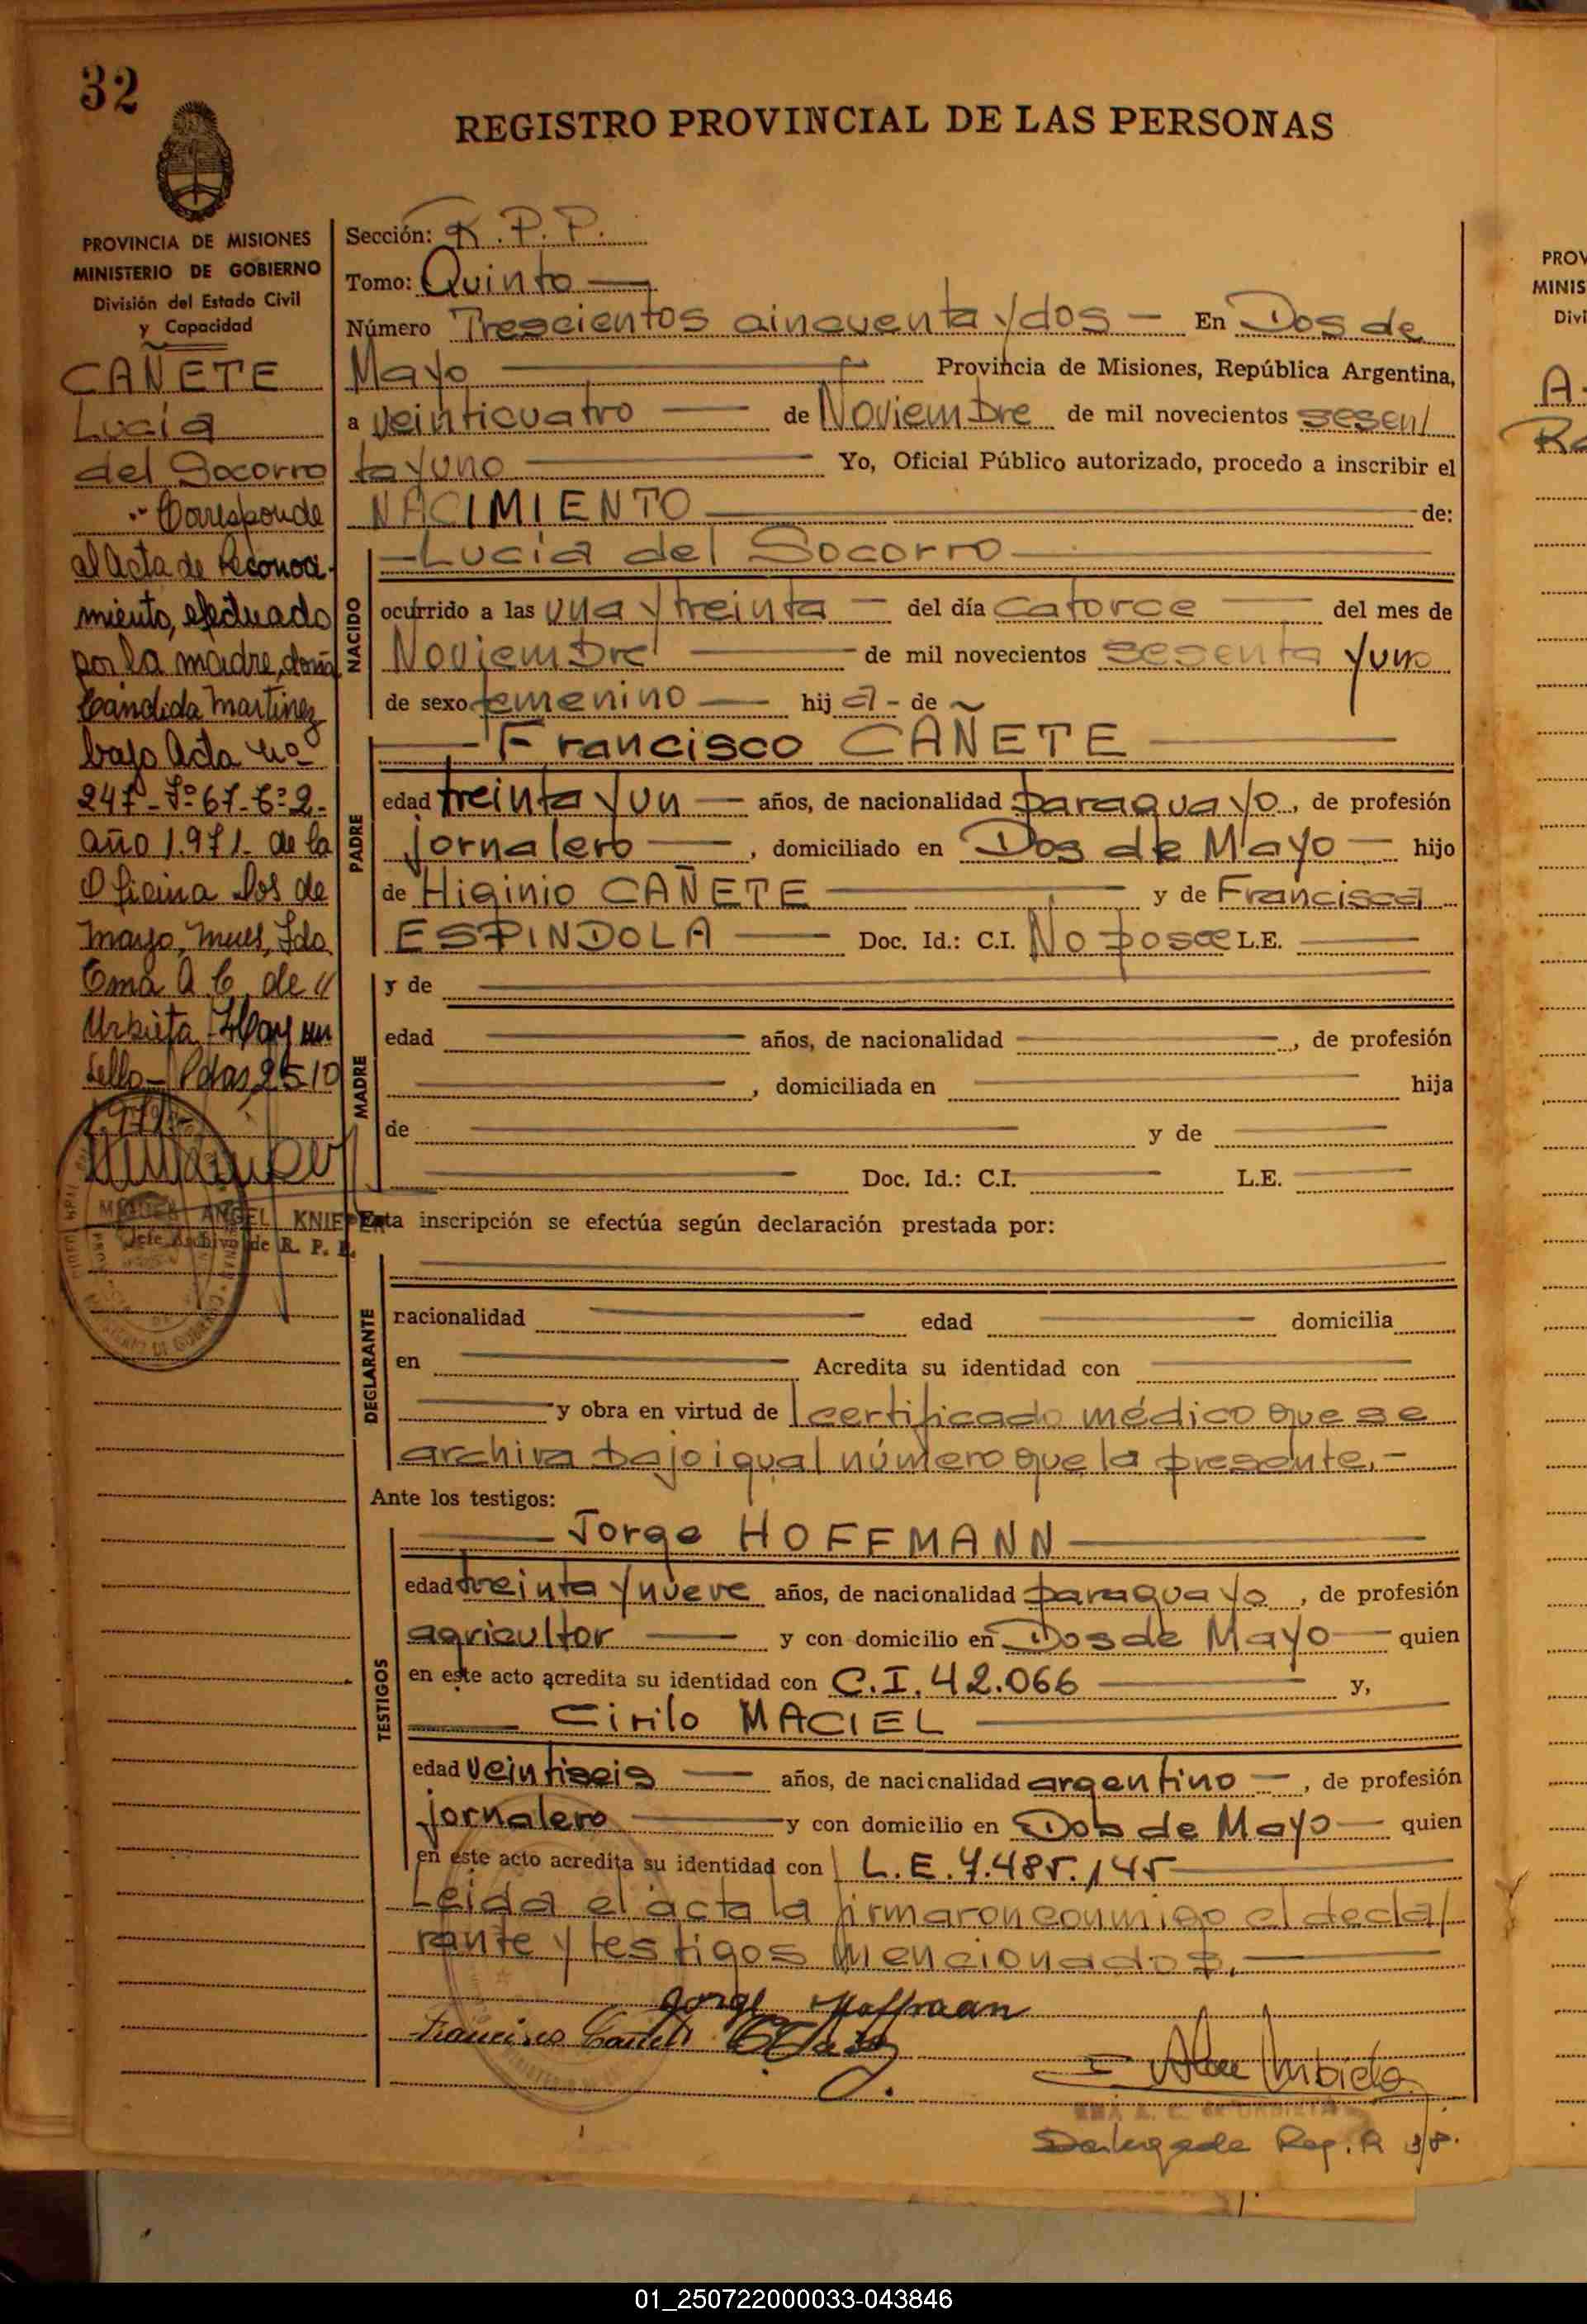 32
REGISTRO PROVINCIAL DE LAS PERSONAS
PROVINCIA DE MISIONES
MINISTERIO DE GOBIERNO
División del Estado Civil
y Capacidad
CAÑETE
Lucía
del Socorro
Corresponde
al Acta de Reconoci-
miento, efectuado
por la madre, doña
Cándida Martinez
bajo Acta Nº
247 - Tº 61 -
año 1.971. de la
Oficina Dos de
Mayo, Mnes, Fdo
Ema A. C. de //
Urbieta. Hay un
sello - Pdas, 25-10
ANGEL KNIE
Jefe Archivo de R. P. P.
Sección: R. P. P.
Tomo: Quinto
Número Trescientos cincuenta y dos — En Dos de
Mayo Provincia de Misiones, República Argentina,
a veinticuatro de Noviembre de mil novecientos sesen/
ta y uno Yo, Oficial Público autorizado, procedo a inscribir el
NACIMIENTO de:
NACIDO
Lucía del Socorro
ocurrido a las una y treinta — del día catorce del mes de
Noviembre de mil novecientos sesenta y uno
de sexo femenino — hij a - de
PADRE
Francisco CAÑETE
edad treinta y un — años, de nacionalidad paraguayo, de profesión
jornalero —, domiciliado en Dos de Mayo — hijo
de Higinio CAÑETE y de Francisca
ESPINDOLA — Doc. Id.: C.I. No posee L.E.
MADRE
y de
edad años, de nacionalidad , de profesión
, domiciliada en hija
de y de
Doc. Id.: C.I. L.E.
Esta inscripción se efectúa según declaración prestada por:
DECLARANTE
nacionalidad edad domicilia
en Acredita su identidad con
y obra en virtud de certificado médico que se
archiva bajo igual número que la presente.-
Ante los testigos:
TESTIGOS
Jorge HOFFMANN
edad treinta y nueve años, de nacionalidad paraguayo, de profesión
agricultor y con domicilio en Dos de Mayo — quien
en este acto acredita su identidad con C.I. 42.066 y,
Cirilo MACIEL
edad veintiseis — años, de nacionalidad argentino —, de profesión
jornalero y con domicilio en Dos de Mayo — quien
en este acto acredita su identidad con L.E. 7.485.145
Leida el acta la firmaron conmigo el decla/
rante y testigos mencionados.
Jorge Hoffmann
Francisco Cañete
EMA A. C. de URBIETA
01_250722000033-043846